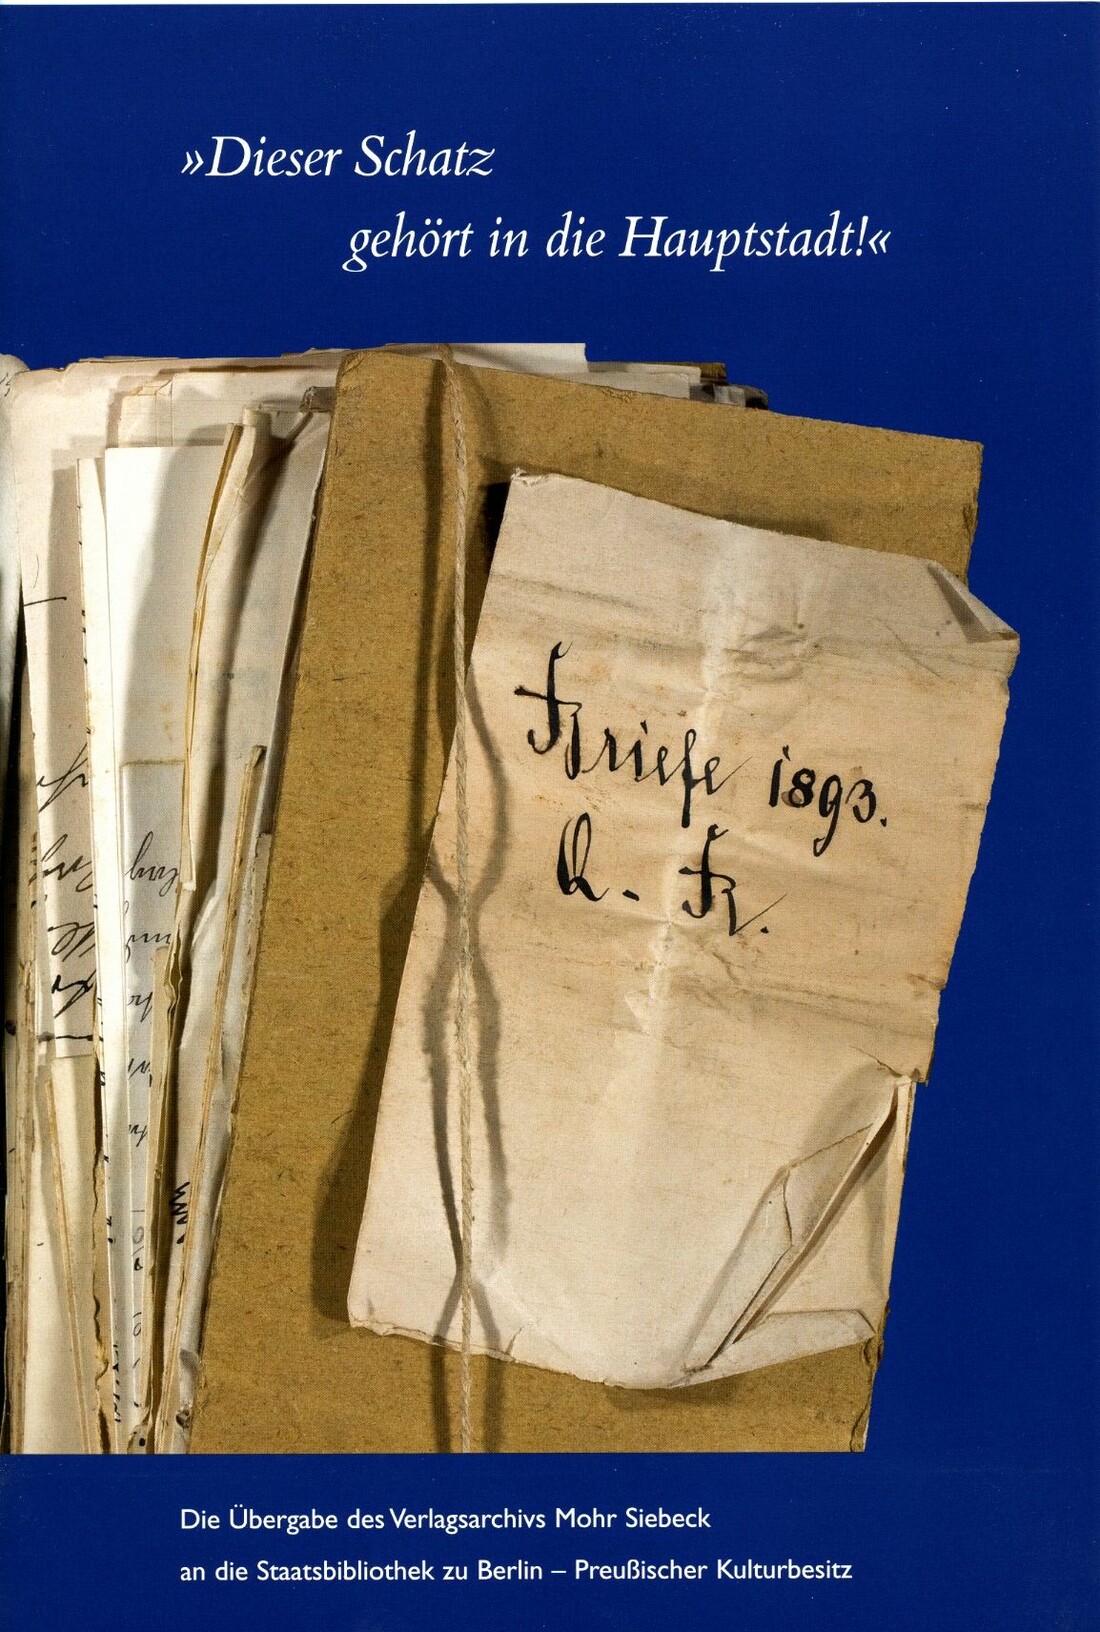 »Dieser Schatz
gehört in die Hauptstadt!«
Briefe 1893.
A - B.
Die Übergabe des Verlagsarchivs Mohr Siebeck
an die Staatsbibliothek zu Berlin – Preußischer Kulturbesitz